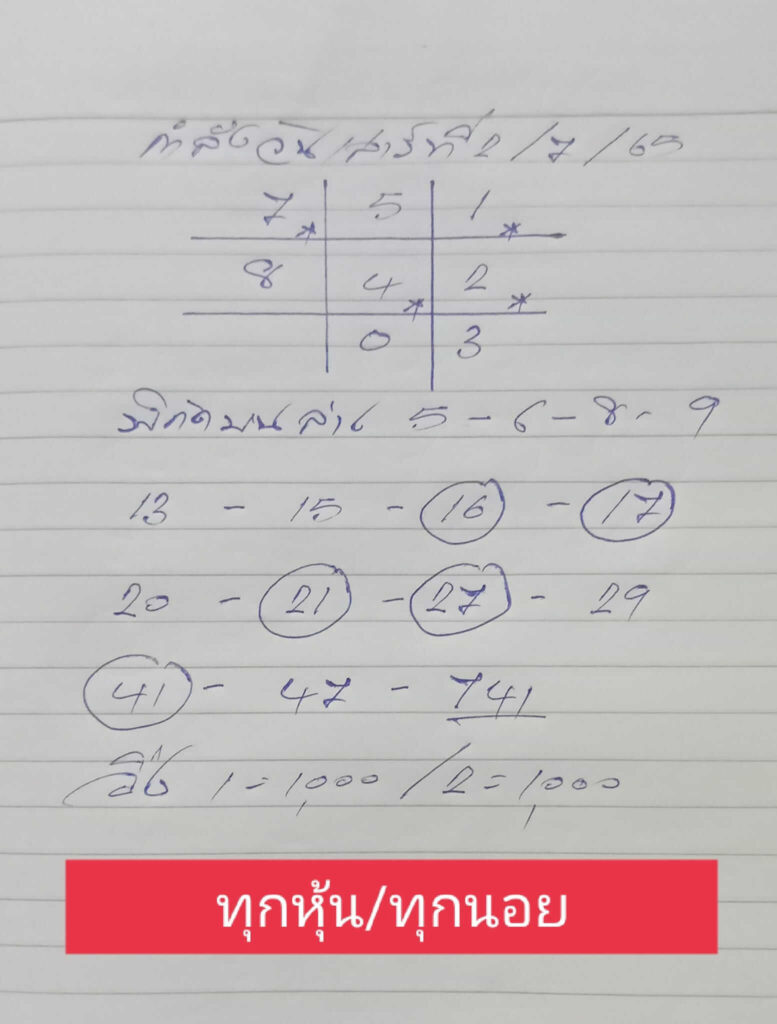 กำลังวันเสาร์ที่ 2/7/65
7* 5 1*
8 4* 2*
0 3
พิกัดบนล่าง 5 - 6 - 8 - 9
13 - 15 - 16 - 17
20 - 21 - 27 - 29
41 - 47 - 741
วิ่ง 1 = 1,000 / 2 = 1,000
ทุกหุ้น/ทุกนอย